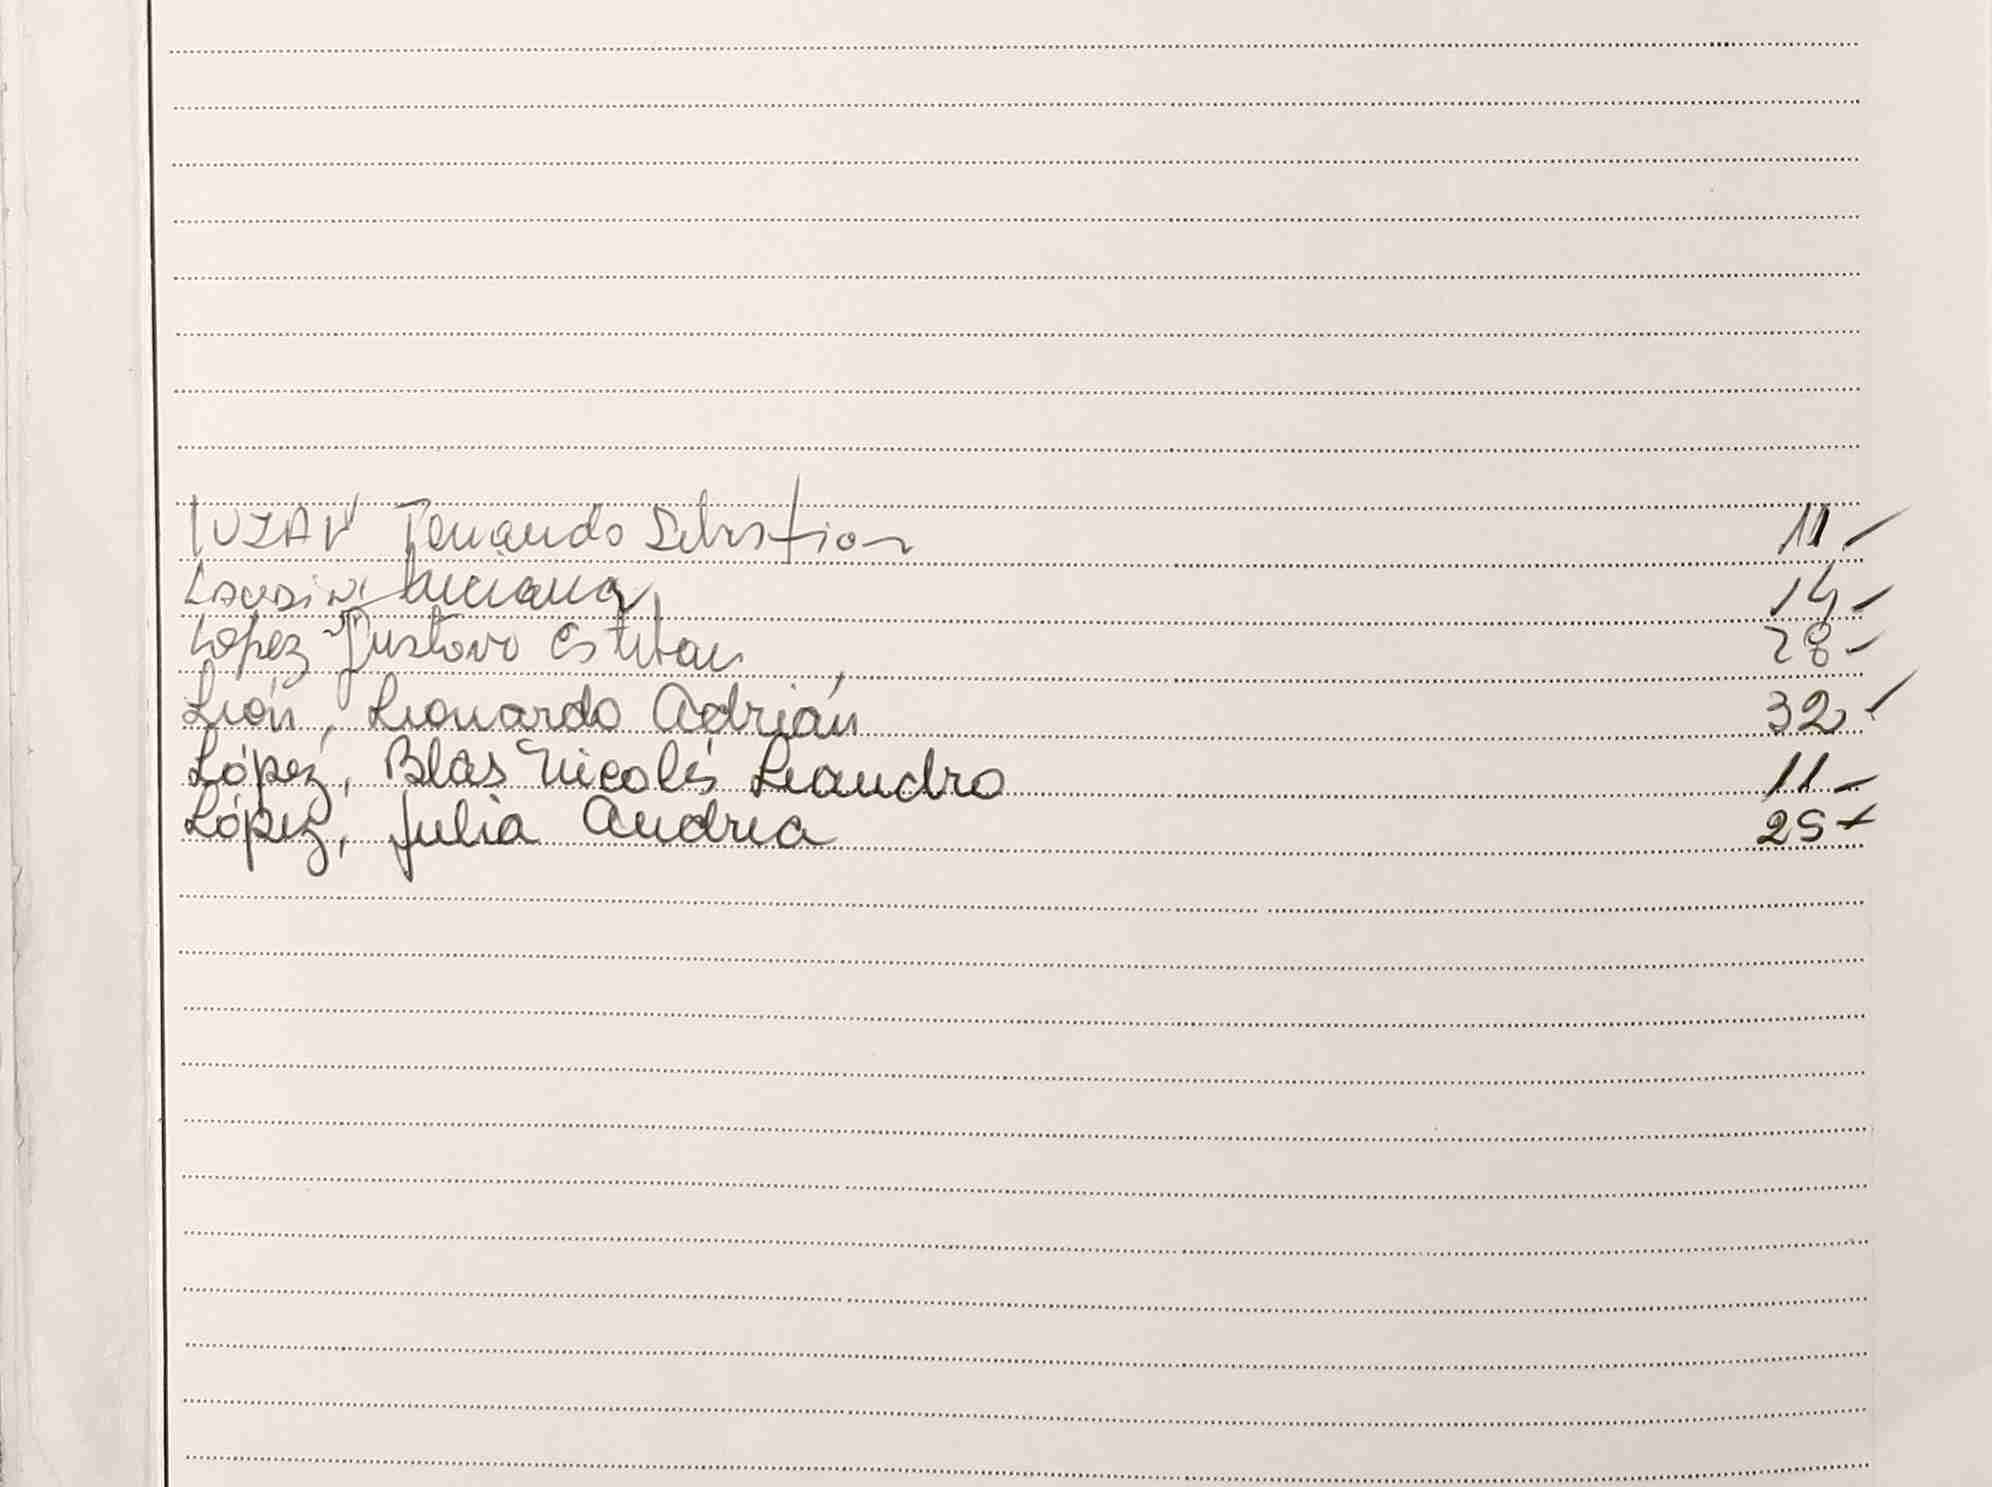 Fernando Sebastian 11-
Luciana 14-
Lopez Gustavo Esteban 28-
León, Leonardo Adrián 32-
López, Blas Nicolás Leandro 11-
López, Julia Andrea 25-